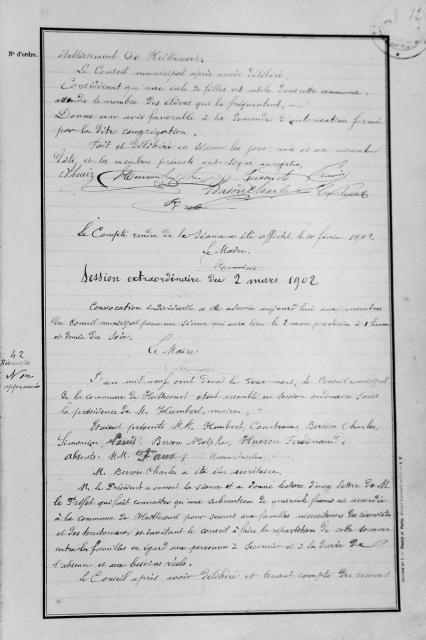 N° d'ordre.
établissement de Heillecourt.
Le Conseil municipal après avoir délibéré,
Considérant qu'une école de filles est utile dans cette commune,
attendu le nombre des élèves qui la fréquentent,
Donne un avis favorable à la demande d'autorisation formée
par la dite congrégation.
Fait et délibéré en séance les jour, mois et an avant
dits, et les membres présents ont signé
Le Compte rendu de la Séance a été affiché le 10 février 1902.
Le Maire,
Session extraordinaire du 2 mars 1902
Convocation individuelle a été adressée aujourd'hui aux membres
du Conseil municipal pour une séance qui aura lieu le 2 mars prochain à 1 heure
et demie du soir.
Le Maire
42
Non
approuvés
L'an mil neuf cent deux le deux mars, le Conseil municipal
de la commune de Heillecourt étant assemblé en session ordinaire sous
la présidence de M. Humbert, maire.
Etaient présents M.M. Humbert, Courteaux, Berson Charles,
Simonin Louis, Berson Adolphe, Husson Ferdinand,
absents M.M.
M. Berson Charles a été élu secrétaire.
M. le Président a ouvert la séance et a donné lecture d'une lettre de M.
le Préfet qui fait connaître qu'une subvention de quarante francs est accordée
à la commune de Heillecourt pour secours aux familles nécessiteuses des réservistes
et des territoriaux, et invitant le conseil à faire la répartition de cette somme
entre les familles eu égard aux personnes à secourir et à la durée de
l'absence et aux besoins réels.
Le Conseil après avoir délibéré et tenant compte des